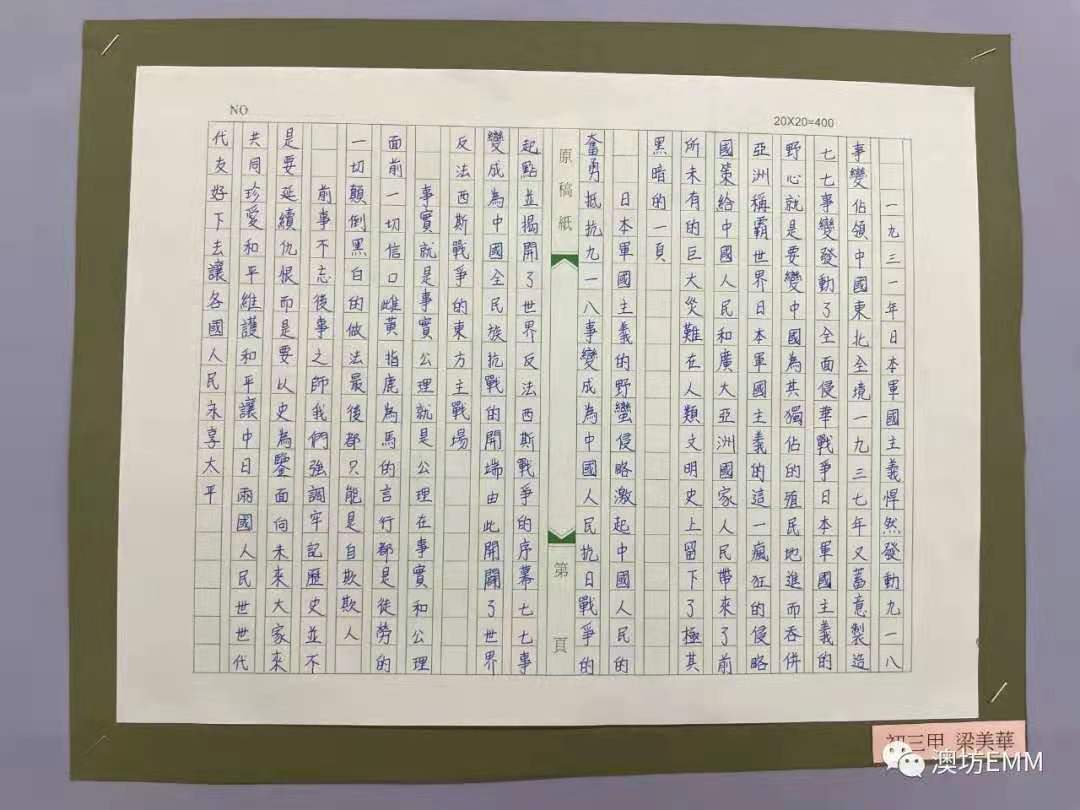 NO
20X20=400
一九三一年日本軍國主義悍然發動九一八
事變佔領中國東北全境一九三七年又蓄意製造
七七事變發動了全面侵華戰爭日本軍國主義的
野心就是要變中國為其獨佔的殖民地進而吞併
亞洲稱霸世界日本軍國主義的這一瘋狂的侵略
國策給中國人民和廣大亞洲國家人民帶來了前
所未有的巨大災難在人類文明史上留下了極其
黑暗的一頁
日本軍國主義的野蠻侵略激起中國人民的
奮勇抵抗九一八事變成為中國人民抗日戰爭的
原稿紙 第 頁
起點並揭開了世界反法西斯戰爭的序幕七七事
變成為中國全民族抗戰的開端由此開闢了世界
反法西斯戰爭的東方主戰場
事實就是事實公理就是公理在事實和公理
面前一切信口雌黃指鹿為馬的言行都是徒勞的
一切顛倒黑白的做法最後都只能是自欺欺人
前事不忘後事之師我們強調牢記歷史並不
是要延續仇恨而是要以史為鑒面向未來大家來
共同珍愛和平維護和平讓中日兩國人民世世代
代友好下去讓各國人民永享太平
初三甲 梁美華
澳坊EMM